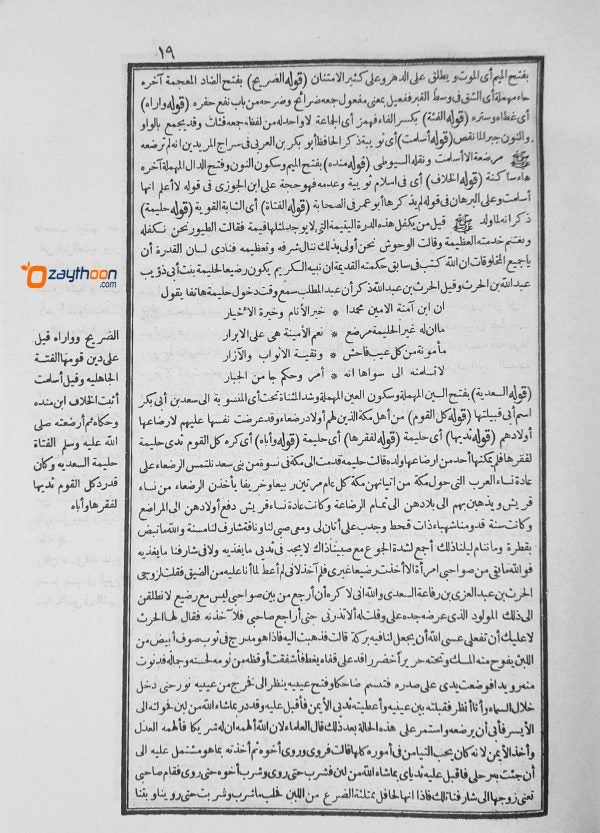 ١٩
بفتح الميم أى الموت ويطلق على الدهر وعلى كثير الامتنان (قوله الضريح) بفتح الضاد المعجمة آخره
حاء مهملة أى الشق فى وسط القبر ففعيل بمعنى مفعول جمعه ضرائح وضرحه من باب نفع حفره (قوله واراه)
أى غطاه وستره (قوله الفئة) بكسر الفاء فهمز أى الجماعة لا واحد له من لفظه جمعه فئات وقد يجمع بالواو
والنون جبرا لما نقص (قوله أسلمت) أى ثويبة ذكر الحافظ أبو بكر بن العربى فى سراج المريدين انه لم ترضعه
صلى الله عليه وسلم مرضعة الا أسلمت ونقله السيوطى (قوله منده) بفتح الميم وسكون النون وفتح الدال المهملة آخره
هاء ساكنة (قوله الخلاف) أى فى اسلام ثويبة وعدمه فهو حجة على ابن الجوزى فى قوله لا أعلم انها
أسلمت وعلى البرهان فى قوله لم يذكرها أبو عمر فى الصحابة (قوله الفتاة) أى الشابة القوية (قوله حليمة)
ذكر انه لما ولد صلى الله عليه وسلم قيل من يكفل هذه الدرة اليتيمة التى لا يوجد لمثلها قيمة فقالت الطيور نحن نكفله
ونغتنم خدمته العظيمة وقالت الوحوش نحن أولى بذلك ننال شرفه وتعظيمه فنادى لسان القدرة أن
يا جميع المخلوقات ان الله كتب فى سابق حكمته القديمة ان نبيه الكريم يكون رضيعا لحليمة بنت أبى ذؤيب
عبد الله بن الحرث وقيل الحرث بن عبد الله ذكر أن عبد المطلب سمع وقت دخول حليمة هاتفا يقول
ان ابن آمنة الامين محمدا * خير الأنام وخيرة الأخيار
ما ان له غير الحليمة مرضع * نعم الأمينة هى على الابرار
مأمونة من كل عيب فاحش * ونقية الاثواب والآزار
لا تسلمنه الى سواها انه * أمر وحكم جا من الجبار
(قوله السعدية) بفتح السين المهملة وسكون العين المهملة وشد المثناة تحت أى المنسوبة الى سعد بن أبى بكر
اسم أبى قبيلتها (قوله كل القوم) من أهل مكة الذين لهم أولاد رضعاء وقد عرضت نفسها عليهم لارضاعها
أولادهم (قوله ثديها) أى حليمة (قوله لفقرها) أى حليمة (قوله وأباه) أى كره كل القوم ثدى حليمة
لفقرها فلم يمكنها أحد من ارضاعها ولده قالت حليمة قدمت الى مكة فى نسوة من بنى سعد نلتمس الرضعاء على
عادة نساء العرب التى حول مكة من اتيانهن مكة كل عام مرتين ربيعا وخريفا يأخذن الرضعاء من نساء
قريش ويذهبن بهم الى بلادهن الى تمام الرضاعة وكانت عادة نساء قريش دفع أولادهن الى المراضع
وكانت سنة قدومنا شهباء ذات قحط وجدب على أتان لى ومعى صبى لنا وناقة شارف لنا مسنة والله ما تبض
بقطرة وما ننام ليلنا ذلك أجمع لشدة الجوع مع صبينا ذاك لا يجد فى ثديى ما يغذيه ولا فى شارفنا ما يغذيه
فوالله ما بقى من صواحبى امرأة الا أخذت رضيعا غيرى فلم آخذ لانى لم أعط لما أنا عليه من الضيق فقلت لزوجى
الحرث بن عبد العزى بن رفاعة السعدى والله انى لا كره أن أرجع من بين صواحبى ليس مع رضيع لانطلقن
الى ذلك المولود الذى عرضه جده على وقلت له ألا تذرنى حتى أراجع صاحبى فلا آخذنه فقال لها الحرث
لا عليك أن تفعلى عسى الله أن يجعل لنا فيه بركة قالت فذهبت اليه فاذا هو مدرج فى ثوب صوف أبيض من
اللبن يفوح منه المسك وتحته حرير أخضر راقد على قفاه يغط فأشفقت أوقظه من نومه لحسنه وجماله فدنوت
منه رويدا فوضعت يدى على صدره فتبسم ضاحكا وفتح عينيه ينظر الى فخرج من عينيه نور حتى دخل
خلال السماء وأنا أنظر فقبلته بين عينيه وأعطيته ثديى الأيمن فأقبل عليه وقدر بما شاء الله من لبن فحولته الى
الأيسر فأبى أن يرضعه واستمر على هذه الحالة بعد ذلك قال العلماء لان الله ألهمه ان له شريكا فألهمه العدل
وأخذ الأيمن لانه كان يحب التيامن فى أموره كلها قالت فروى وروى أخوه ثم أخذته بما هو مشتمل عليه الى
ان جئت به رحلى فأقبل عليه ثدياى بما شاء الله من لبن فشرب حتى روى وشرب أخوه حتى روى فقام صاحبى
تعنى زوجها الى شارفنا تلك فاذا انها لحافل بمتلئة الضرع من اللبن فحلب ما شرب وشربت حتى روينا وبتنا
الضريح وواراه قيل
على دين قومها الفئة
الجاهليه وقيل أسلمت
أثبت الخلاف ابن منده
وحكاه ثم أرضعته صلى
الله عليه وسلم الفتاة
حليمة السعديه وكان
قد رد كل القوم ثديها
لفقرها وأباه
Ozaythoon
.com